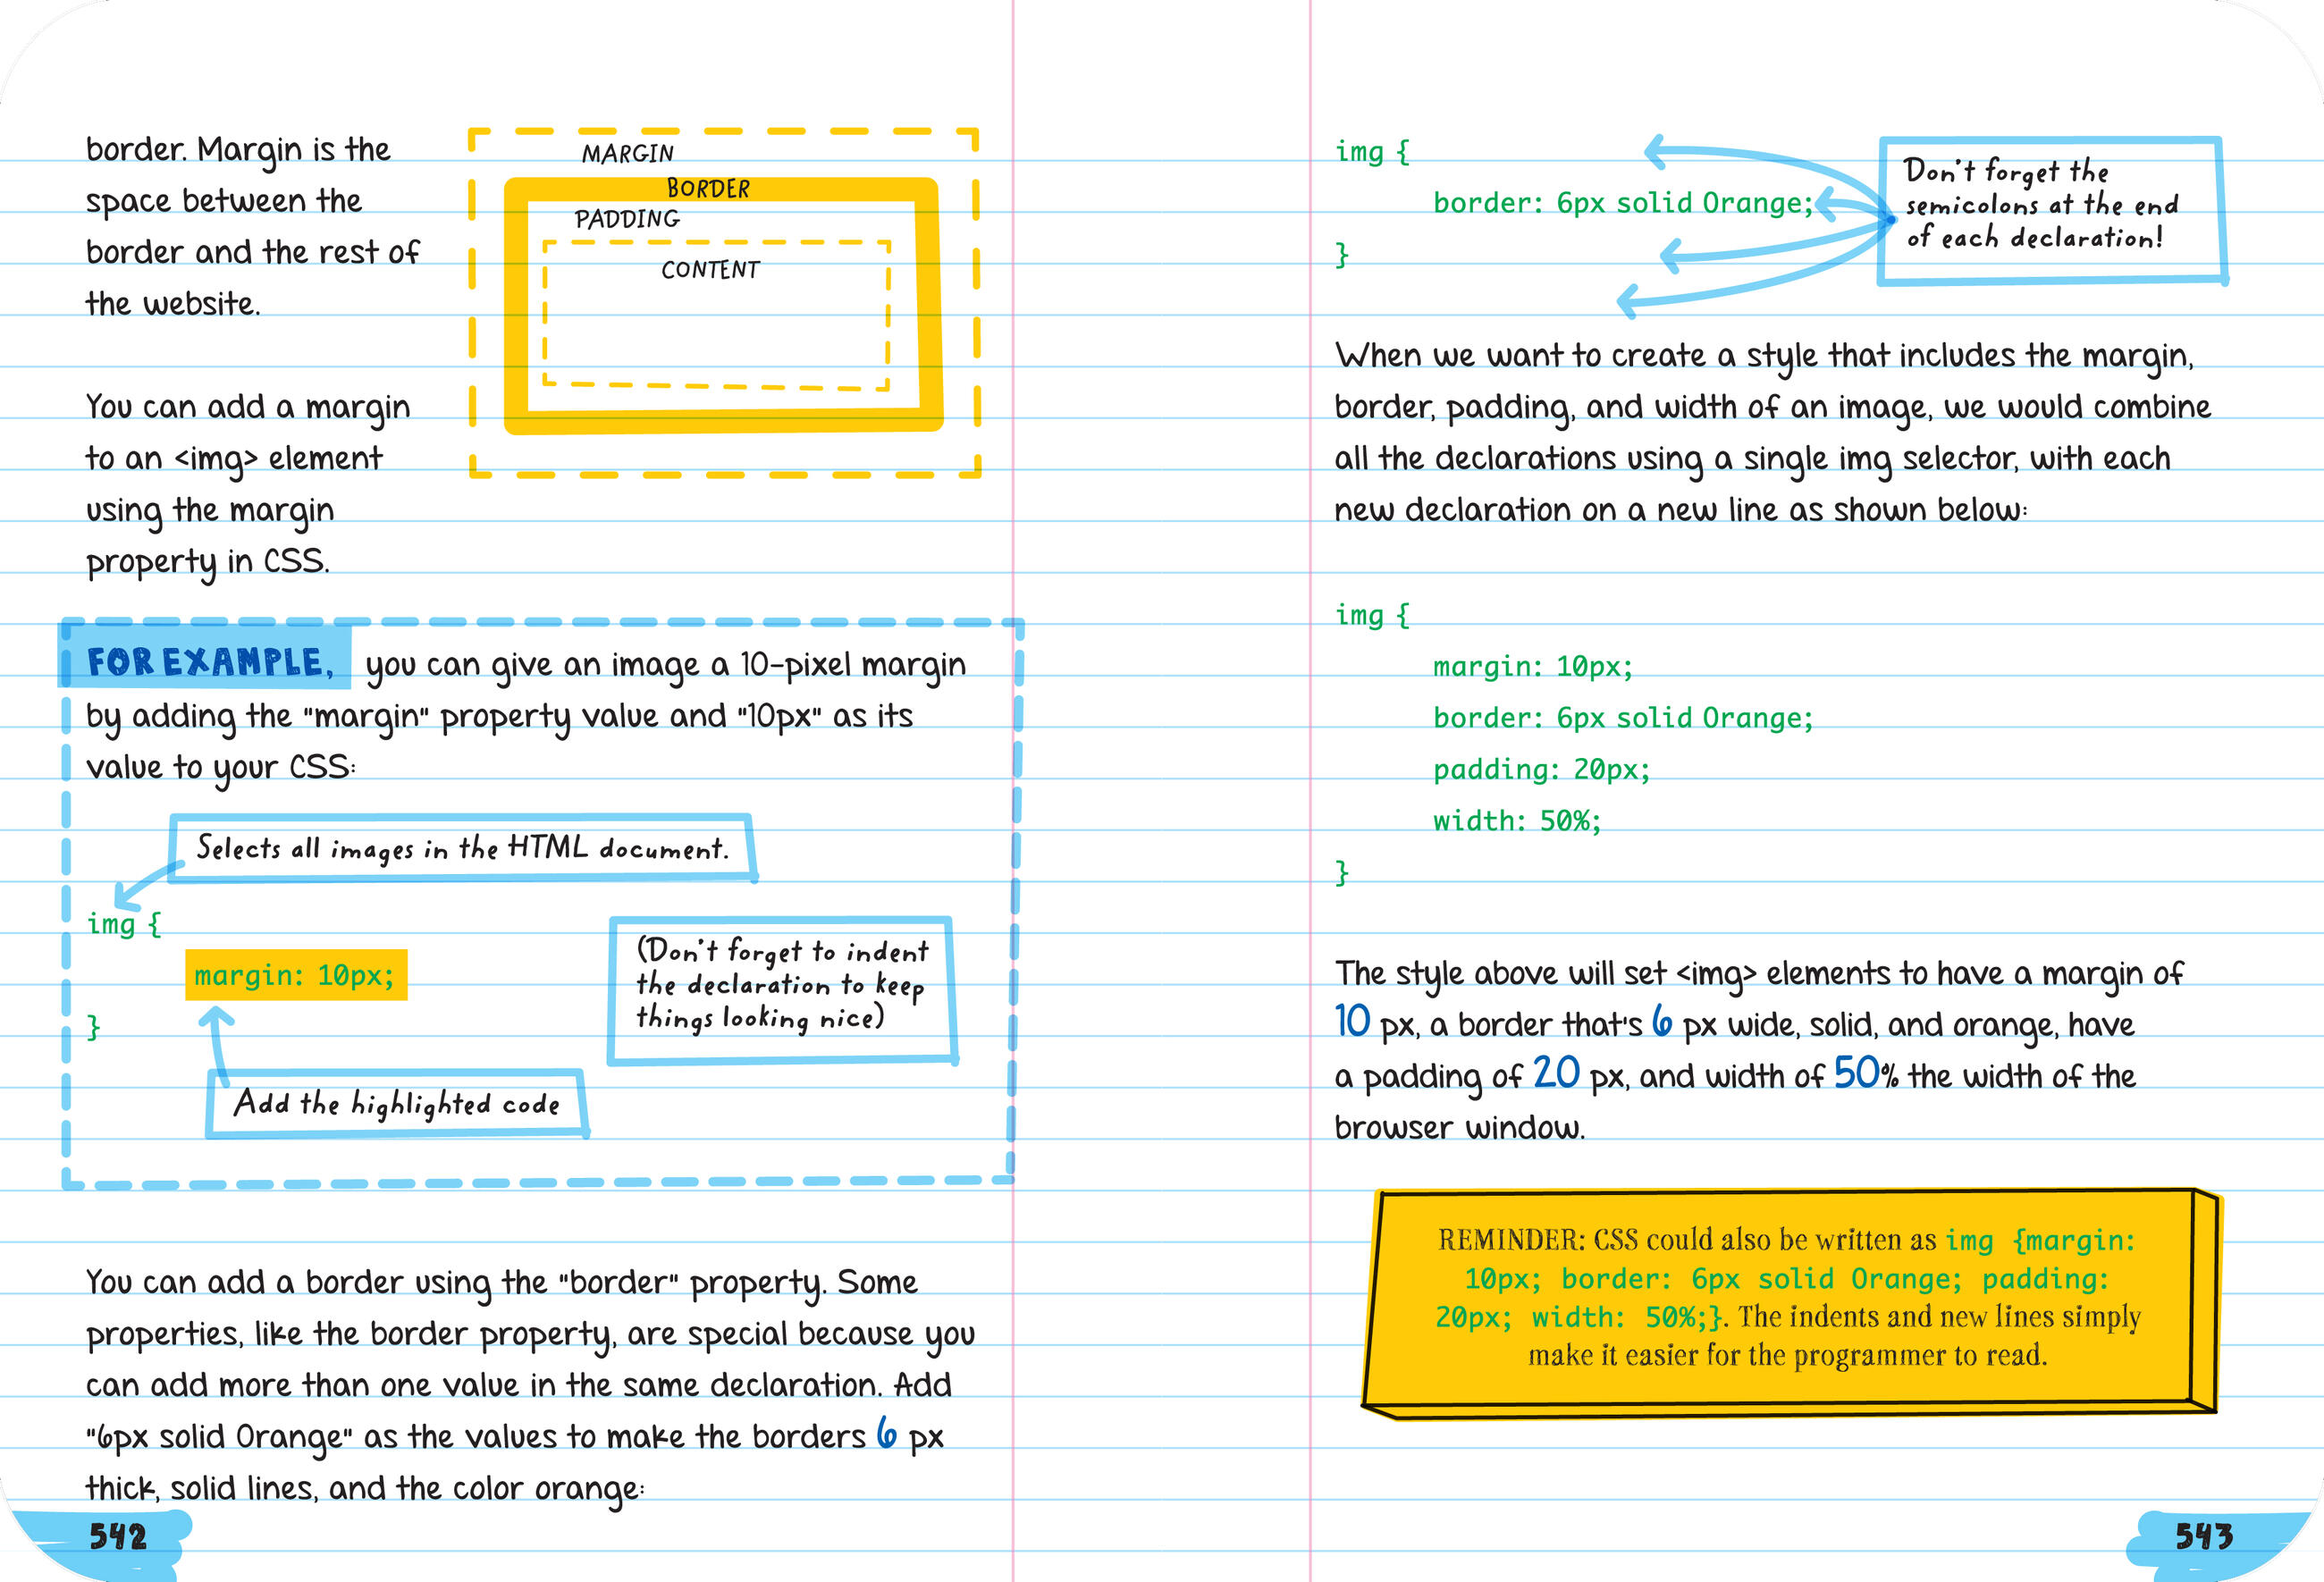 border. Margin is the
space between the
border and the rest of
the website.
MARGIN
BORDER
PADDING
CONTENT
You can add a margin
to an <img> element
using the margin
property in CSS.
FOR EXAMPLE, you can give an image a 10-pixel margin
by adding the "margin" property value and "10px" as its
value to your CSS:
Selects all images in the HTML document.
img {
margin: 10px;
}
(Don't forget to indent
the declaration to keep
things looking nice)
Add the highlighted code
You can add a border using the "border" property. Some
properties, like the border property, are special because you
can add more than one value in the same declaration. Add
"6px solid Orange" as the values to make the borders 6 px
thick, solid lines, and the color orange:
542
img {
border: 6px solid Orange;
}
Don't forget the
semicolons at the end
of each declaration!
When we want to create a style that includes the margin,
border, padding, and width of an image, we would combine
all the declarations using a single img selector, with each
new declaration on a new line as shown below:
img {
margin: 10px;
border: 6px solid Orange;
padding: 20px;
width: 50%;
}
The style above will set <img> elements to have a margin of
10 px, a border that's 6 px wide, solid, and orange, have
a padding of 20 px, and width of 50% the width of the
browser window.
REMINDER: CSS could also be written as img {margin:
10px; border: 6px solid Orange; padding:
20px; width: 50%;}. The indents and new lines simply
make it easier for the programmer to read.
543